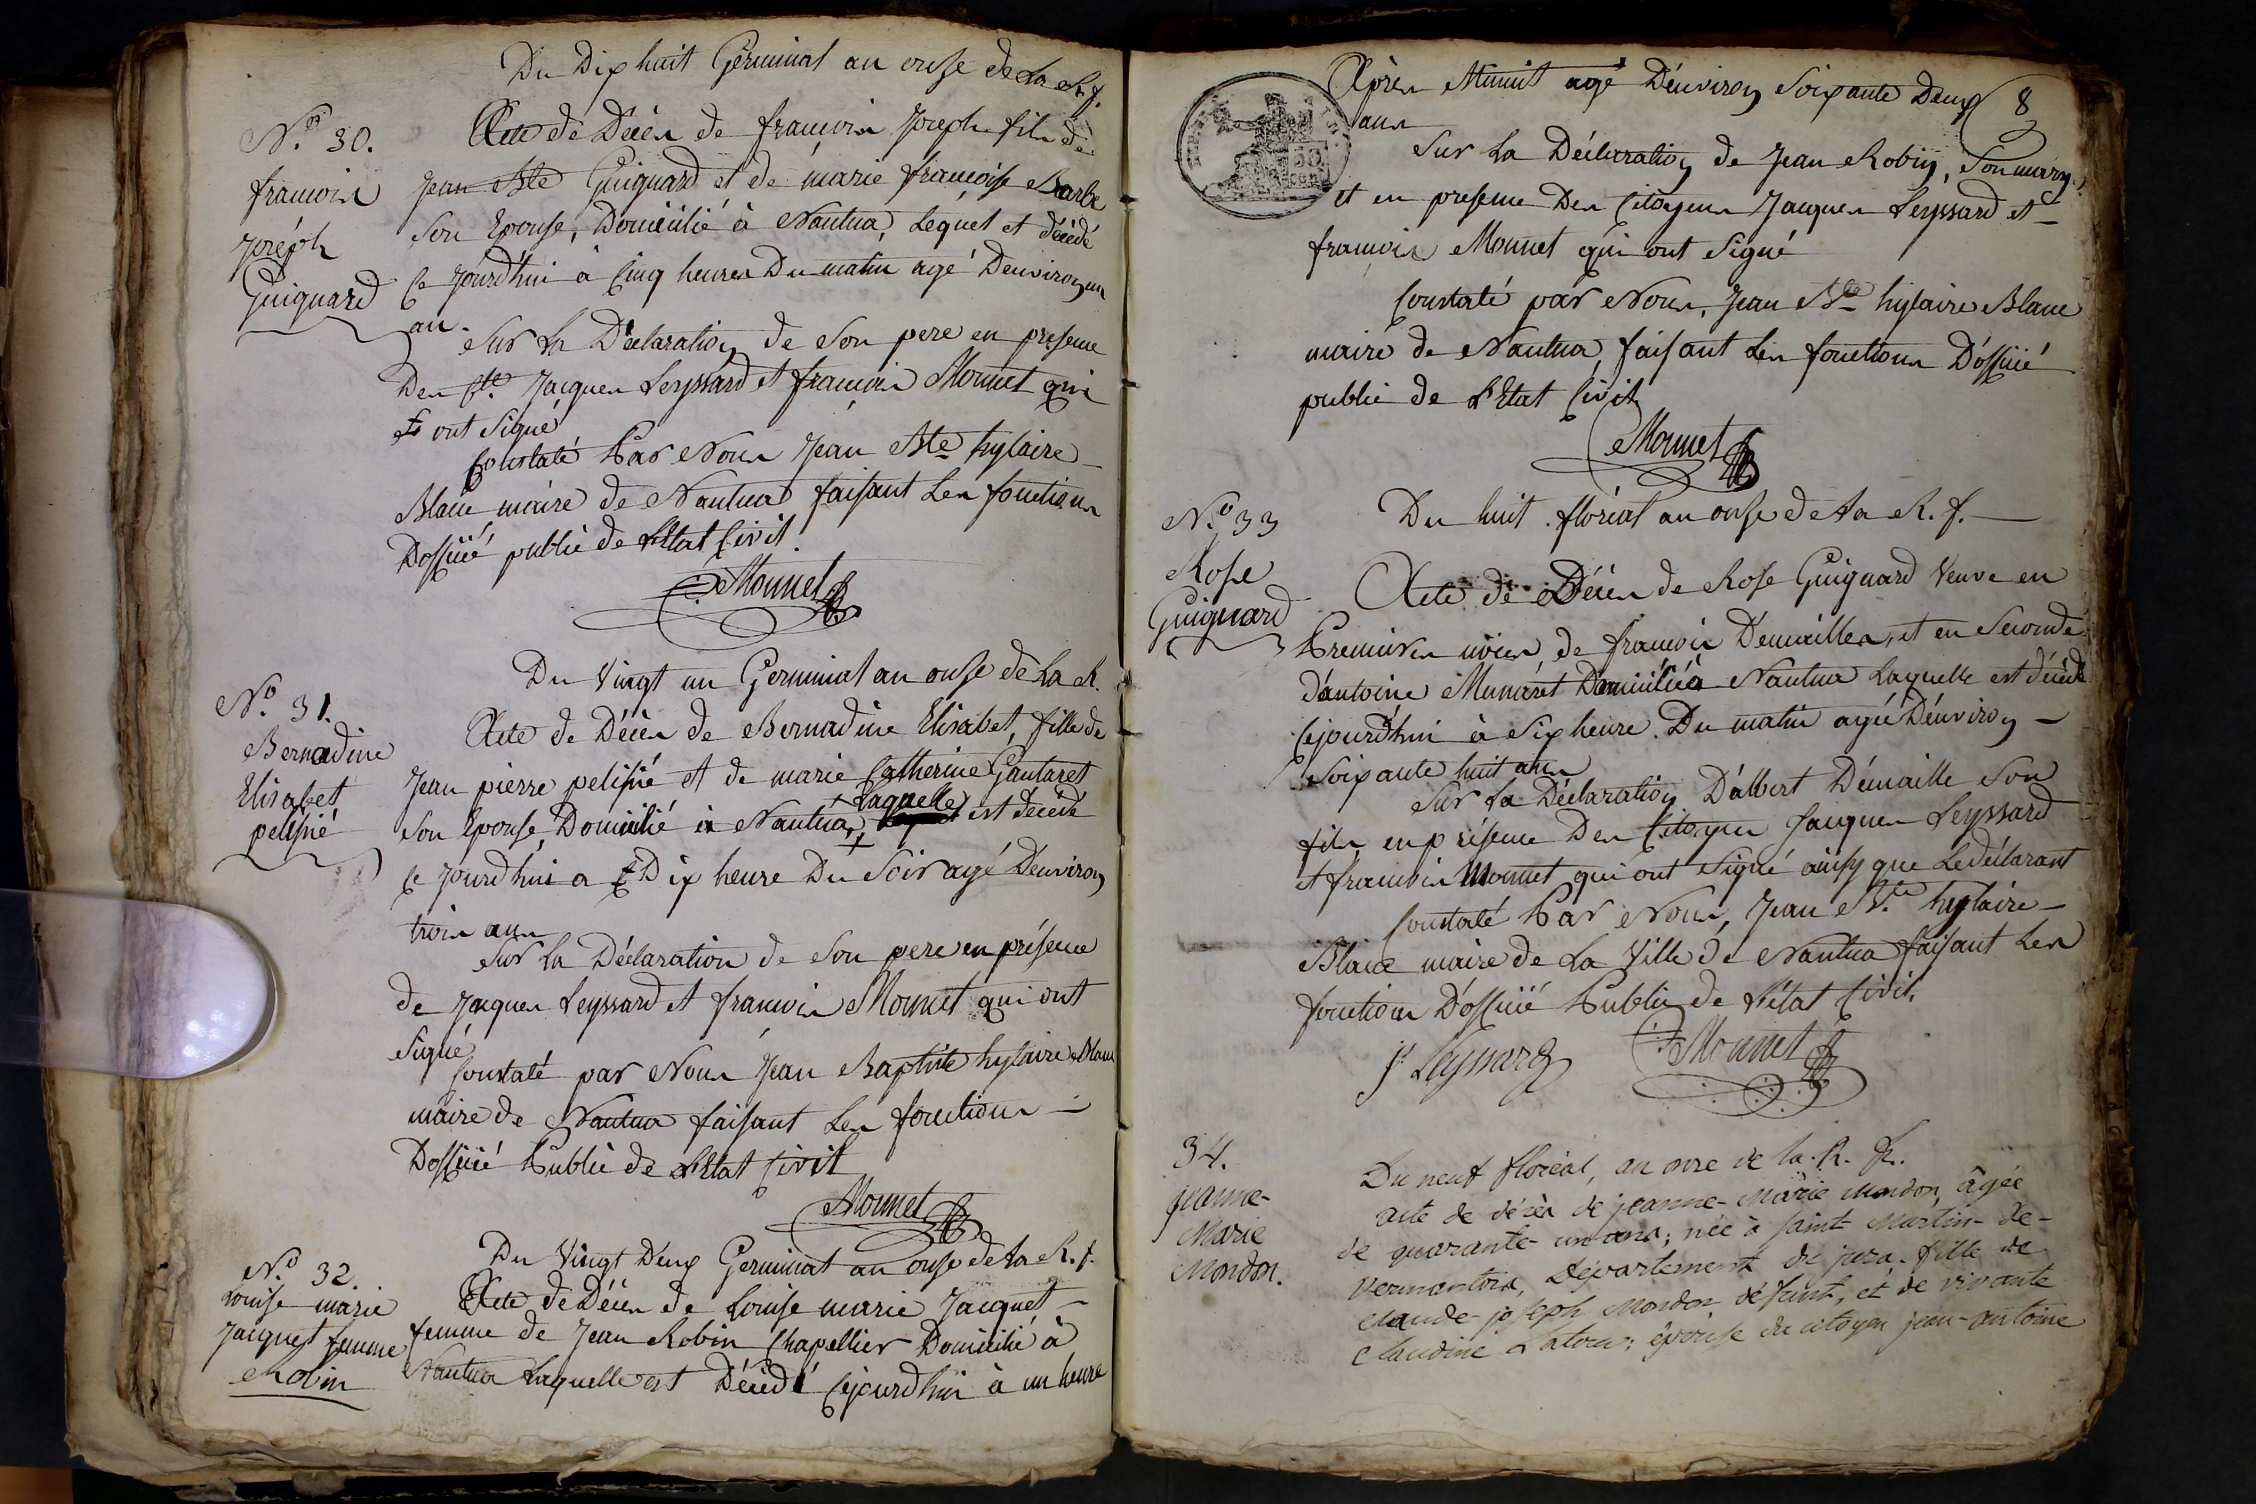 Du Dix huit Germinal an onse de La R. f.
N.º 30.
françois
Joseph
Guiguard
Acte de Décès de françois Joseph fils de
Jean Bte Guiguard et de marie françoise Barbe
son Epouse, Domicilié à Nantua, Lequel et décédé
ce jourdhui à Cinq heures Du matin agé Denviron un
an.
Sur La Déclaration de Son pere en presence
Des Cte. Jacques Leyssard et françois Monnet qui
ont Signé
Constaté Par Nous Jean Bte hylaire
Blanc maire de Nantua faisant Les fonctions
Dofficié public de L'Etat Civil.
Monnet
Du Vingt un Germinal an onse de La R.
N.º 31.
Bernadine
Elisabet
pelissié
Acte de Décès de Bernadine Elisabet, fille de
Jean pierre pelissié et de marie Catherine Gautaret
son Epouse, Domicilié à Nantua, Laquelle est decédé
ce jourdhui a Dix heure Du Soir agé Denviron
trois ans
Sur La Déclaration de Son pere en présence
de Jacques Leyssard et françois Monnet qui ont
Signé
Constaté par Nous Jean Baptiste hylaire Blanc
maire de Nantua faisant Les fonctions
Dofficié Public de L'Etat Civil
Monnet
Du Vingt Deux Germinal an onse de La R. f.
N.º 32.
Louise marie
Jacquet femme
Robin
Acte de Décès de Louise marie Jacquet
femme de Jean Robin Chapellier Domicilié à
Nantua Laquelle est Décédé Cejourdhui à un heure
8
Après Minuit agé D'environ Soixante Deux
ans
Sur La Déclaration de Jean Robin, Son mary,
et en presence Des Citoyens Jacques Leyssard et
françois Monnet qui ont Signé
Constaté par Nous, Jean Bte hylaire Blanc
maire de Nantua, faisant Les fonctions D'officié
public de L'Etat Civil
Monnet
Du huit floréal an onse de La R. f.
N.º 33
Rose
Guiguard
Acte de Décès de Rose Guiguard Veuve en
Premiere noces, de françois Demailles, et en Seconde
d'antoine Munaret Domicilié à Nantua Laquelle est décédé
Cejourdhui à Six heure Du matin agé D'environ
Soixante huit ans
Sur La Déclaration D'albert Démaille Son
fils en présence Des Citoyens Jacques Leyssard
et françois Monnet qui ont Signé ainsy que Le déclarant
Constaté Par Nous, Jean Bte hylaire
Blanc maire de La Ville de Nantua faisant Les
fonctions D'officié Public de l'état Civil.
Jˢ Leyssard
Monnet
34.
jeanne-
Marie
Mondon.
Du neuf floréal, an onze de la. R. f..
acte de décès de jeanne-Marie Mondon, âgée
de quarante-un ans; née à Saint-Martin-de-
Vermantois, Département du jura. fille de
claude-joseph Mondon défunt, et de vivante
Claudine Latour: épouse du citoyen jean-antoine